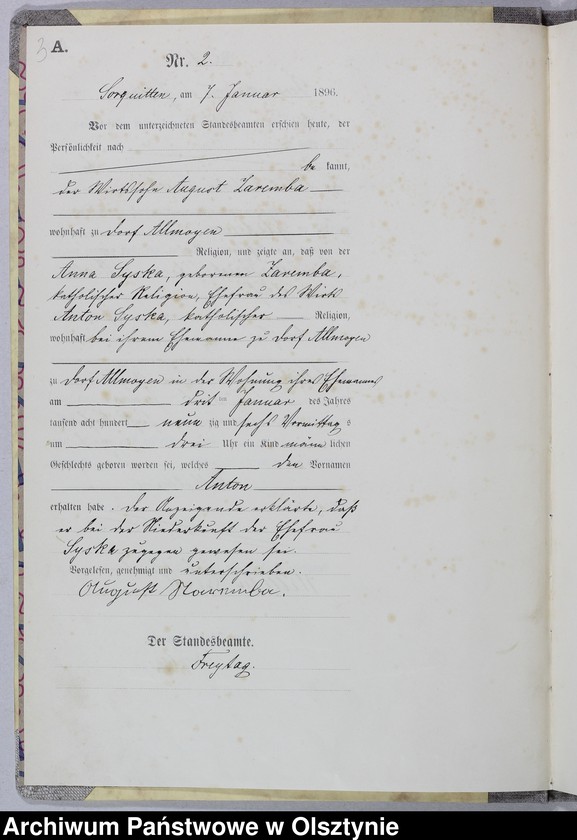 3
A.
Nr. 2.
Sorquitten, am 7. Januar 1896.
Vor dem unterzeichneten Standesbeamten erschien heute, der
Persönlichkeit nach
be kannt,
der Wirtssohn August Zaremba
wohnhaft zu Dorf Allmoyen
Religion, und zeigte an, daß von der
Anna Syska, geborenen Zaremba,
katholischer Religion, Ehefrau des Wirts
Anton Syska, katholischer Religion,
wohnhaft bei ihrem Ehemanne zu Dorf Allmoyen
zu Dorf Allmoyen in der Wohnung ihres Ehemannes
am drit= Januar des Jahres
tausend acht hundert neun zig und sechs Vormittag s
um drei Uhr ein Kind männ lichen
Geschlechts geboren worden sei, welches den Vornamen
Anton
erhalten habe. Der Anzeigende erklärte, daß
er bei der Niederkunft der Ehefrau
Syska zugegen gewesen sei.
Vorgelesen, genehmigt und unterschrieben.
August
Der Standesbeamte.
Freytag.
Archiwum Państwowe w Olsztynie